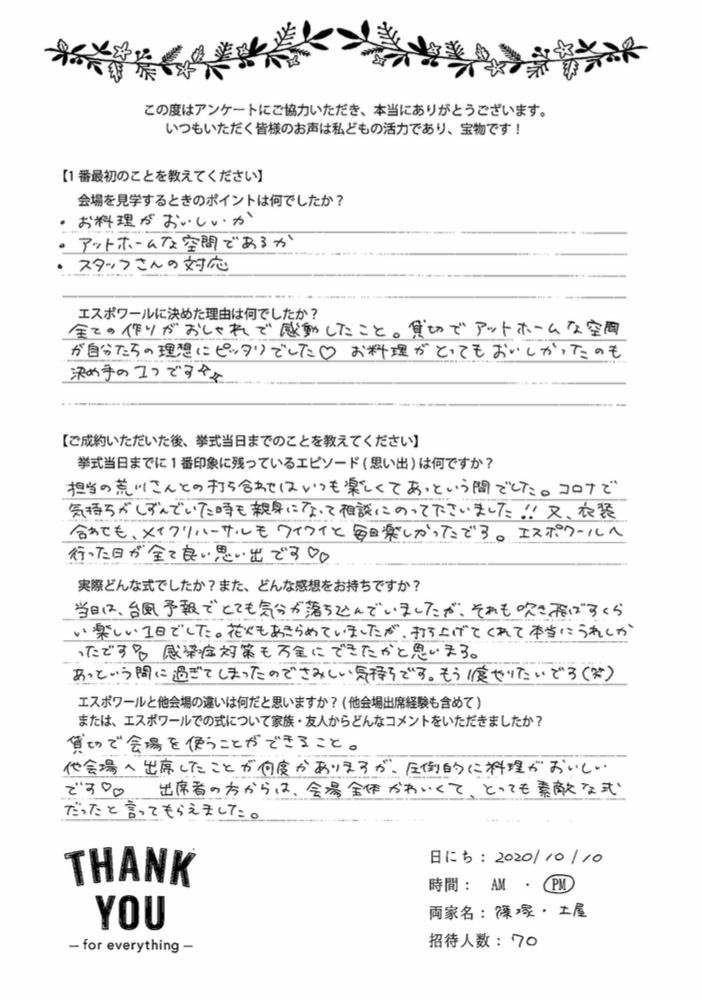 この度はアンケートにご協力いただき、本当にありがとうございます。
いつもいただく皆様のお声は私どもの活力であり、宝物です！
【1番最初のことを教えてください】
会場を見学するときのポイントは何でしたか？
・お料理がおいしいか
・アットホームな空間であるか
・スタッフさんの対応
エスポワールに決めた理由は何でしたか？
全ての作りがおしゃれで感動したこと。貸切でアットホームな空間
が自分たちの理想にピッタリでした♡ お料理がとってもおいしかったのも
決め手の1つです
【ご成約いただいた後、挙式当日までのことを教えてください】
挙式当日までに1番印象に残っているエピソード(思い出)は何ですか？
担当の荒川さんとの打ち合わせはいつも楽しくてあっという間でした。コロナで
気持ちがしずんでいた時も親身になって相談にのってくださいました!! 又、衣装
合わせも、メイクリハーサルもワイワイと毎日楽しかったです。エスポワールへ
行った日が全て良い思い出です♡♡
実際どんな式でしたか？また、どんな感想をお持ちですか？
当日は、台風予報でとても気分が落ち込んでいましたが、それも吹き飛ばすくら
い楽しい1日でした。花火もあきらめていましたが、打ち上げてくれて本当にうれしか
ったです 感染症対策も万全にできたかと思います。
あっという間に過ぎてしまったのでさみしい気持ちです。もう1度やりたいです(笑)
エスポワールと他会場の違いは何だと思いますか？(他会場出席経験も含めて)
または、エスポワールでの式について家族・友人からどんなコメントをいただきましたか？
貸切で会場を使うことができること。
他会場へ出席したことが何度かありますが、圧倒的に料理がおいしい
です♡♡ 出席者の方からは、会場全体かわいくて、とっても素敵な式
だったと言ってもらえました。
THANK
YOU
– for everything –
日にち：2020/10/10
時間： AM ・ PM
両家名：篠塚・土屋
招待人数：70